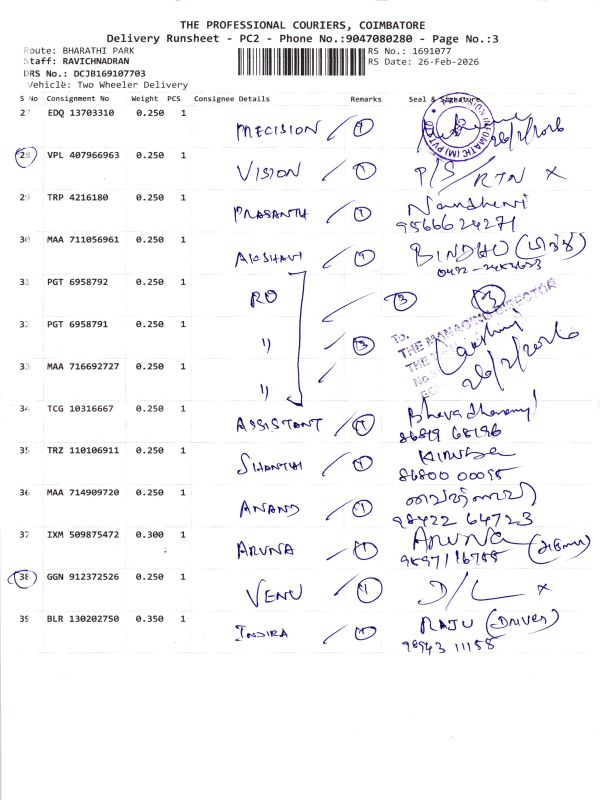 THE PROFESSIONAL COURIERS, COIMBATORE
Delivery Runsheet - PC2 - Phone No.:9047080280 - Page No.:3
Route: BHARATHI PARK
Staff: RAVICHNADRAN
DRS No.: DCJB169107703
Vehicle: Two Wheeler Delivery
RS No.: 1691077
RS Date: 26-Feb-2026
S No Consignment No Weight PCS Consignee Details Remarks Seal & Signature
27 EDQ 13703310 0.250 1 PRECISION 1 26/2/2026
28 VPL 407966963 0.250 1 VISION 1 P/S/RTN X
29 TRP 4216180 0.250 1 PRASANTH 1 Nandhini
9566624271
30 MAA 711056961 0.250 1 AKSHAVI 1 BINDHU
31 PGT 6958792 0.250 1 RO 3 3
32 PGT 6958791 0.250 1 " 3
To,
THE MANAGING DIRECTOR
33 MAA 716692727 0.250 1 " 26/2/2026
34 TCG 10316667 0.250 1 ASSISTANT 1
86819 68196
35 TRZ 110106911 0.250 1 SHANTHI 1
86800 00095
36 MAA 714909720 0.250 1 ANAND 1
98422 64723
37 IXM 509875472 0.300 1 ARUNA 1 ARUNA
9597116755
38 GGN 912372526 0.250 1 VENU 1 D/L X
39 BLR 130202750 0.350 1 INDIRA 1 RAJU (DRIVER)
98943 11158